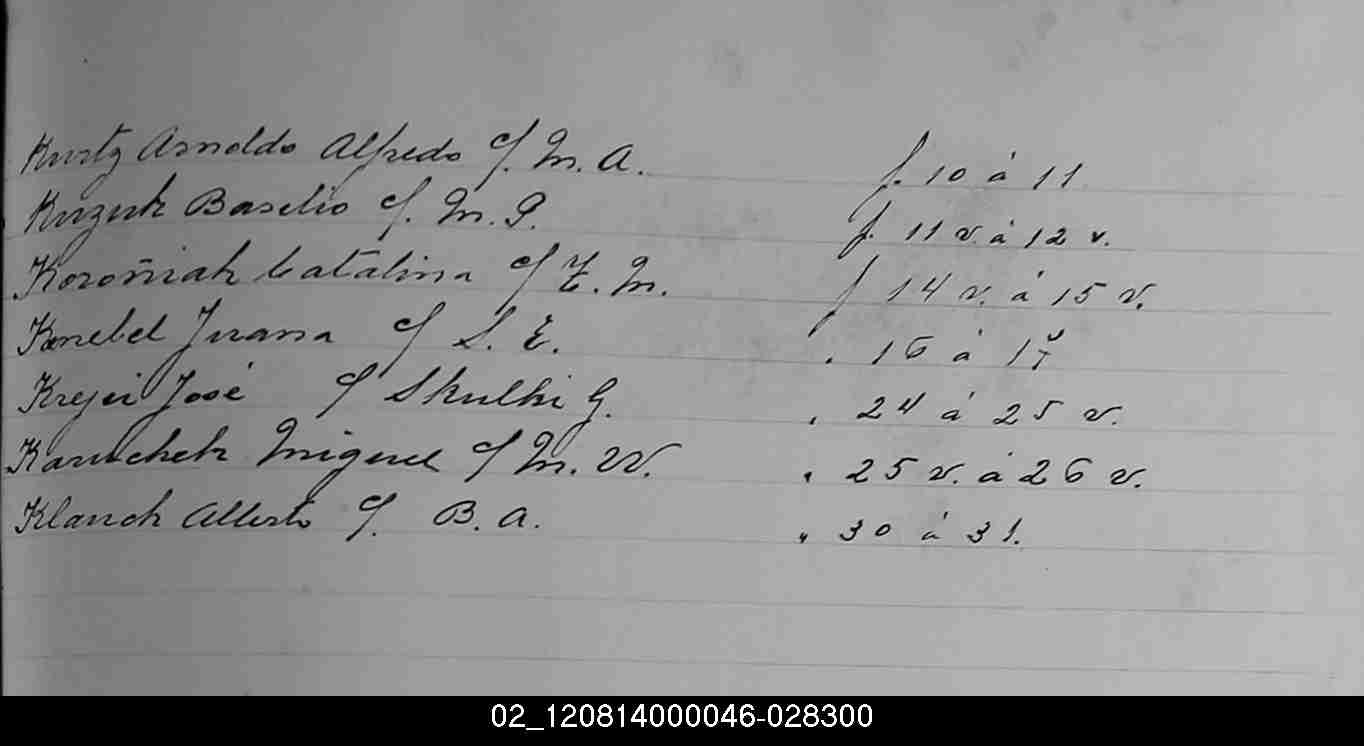 Kurtz Arnoldo Alfredo c/. M. A. f. 10 á 11
Kuzuk Basilio c/. M. P. f. 11 v. á 12 v.
Koroñiak Catalina c/ E. M. f 14 v. á 15 v.
Knebel Juana c/ S. E. " 16 á 17
Krejci José c/ Skulki G. " 24 á 25 v.
Miguel c/ M. W. " 25 v. á 26 v.
Klauck Alberto c/. B. A. " 30 á 31.
02_120814000046-028300